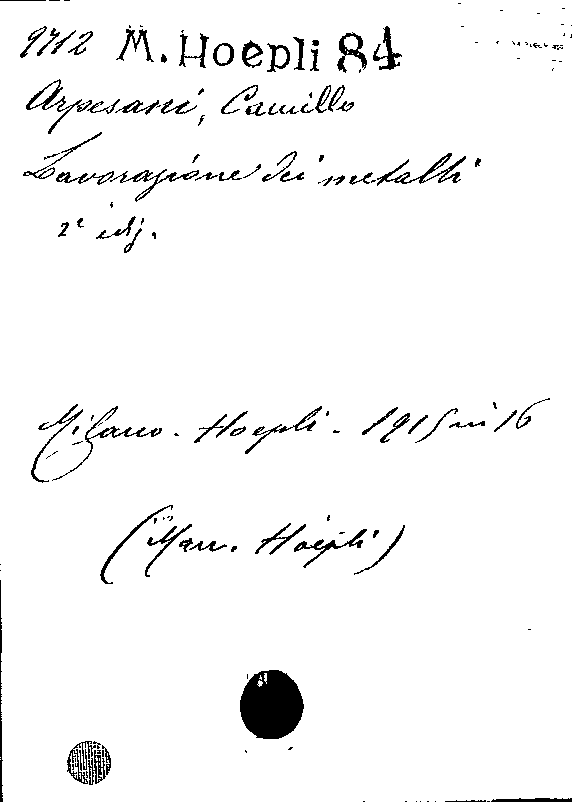 9712 M. Hoepli 84
Arpesani, Camillo
Lavorazione dei metalli
2ª ediz.
Milano - Hoepli - 1915 in 16
(Man. Hoepli)